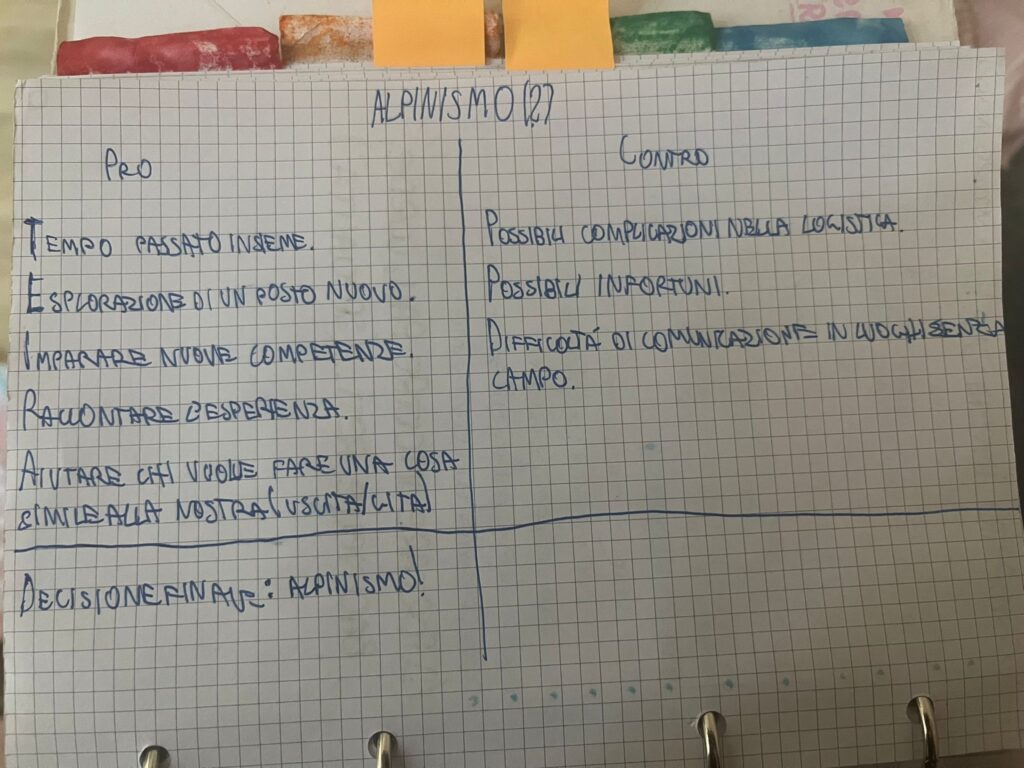 ALPINISMO (2)
PRO
CONTRO
TEMPO PASSATO INSIEME.
ESPLORAZIONE DI UN POSTO NUOVO.
IMPARARE NUOVE COMPETENZE.
RACCONTARE L'ESPERIENZA.
AIUTARE CHI VUOLE FARE UNA COSA
SIMILE ALLA NOSTRA (USCITA/GITA)
POSSIBILI COMPLICAZIONI NELLA LOGISTICA.
POSSIBILI INFORTUNI.
DIFFICOLTÁ DI COMUNICAZIONE IN LUOGHI SENZA
CAMPO.
DECISIONE FINALE: ALPINISMO!